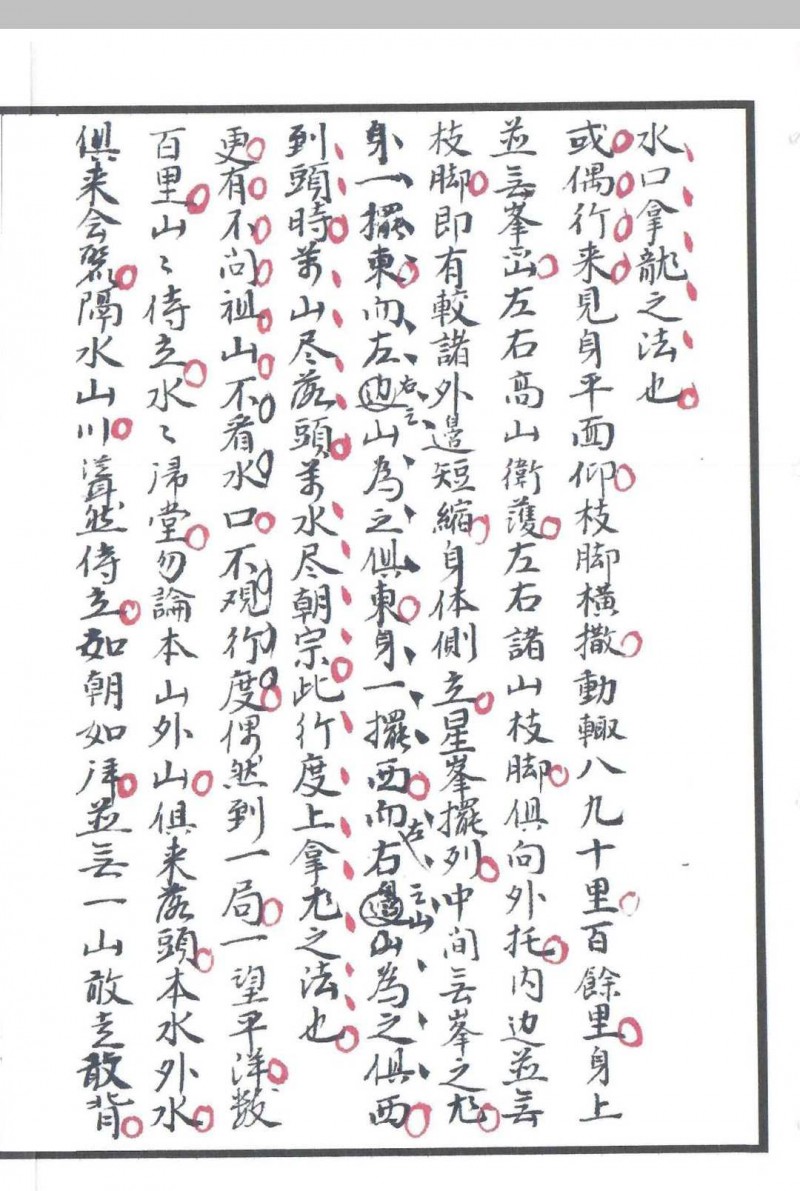 水口拿龍之法也
或偶行来見身平面仰枝脚橫撒動輙八九十里百餘里身上
並無峯巒左右高山衛護左右諸山枝脚俱向外托内边並無
枝脚即有較諸外邉短縮身体側立星峯擺列中间無峯之尨
身一擺東而左边右云山為之俱東身一擺西而右邉左云山山為之俱西
到頭時萬山尽落頭萬水尽朝宗此行度上拿尨之法也
更有不问祖山不看水口不观行度偶然到一局一望平洋数
百里山〻侍立水〻歸堂勿論本山外山俱来落頭本水外水
俱来会聚隔水山川聳然侍立如朝如拜並無一山敢走敢背